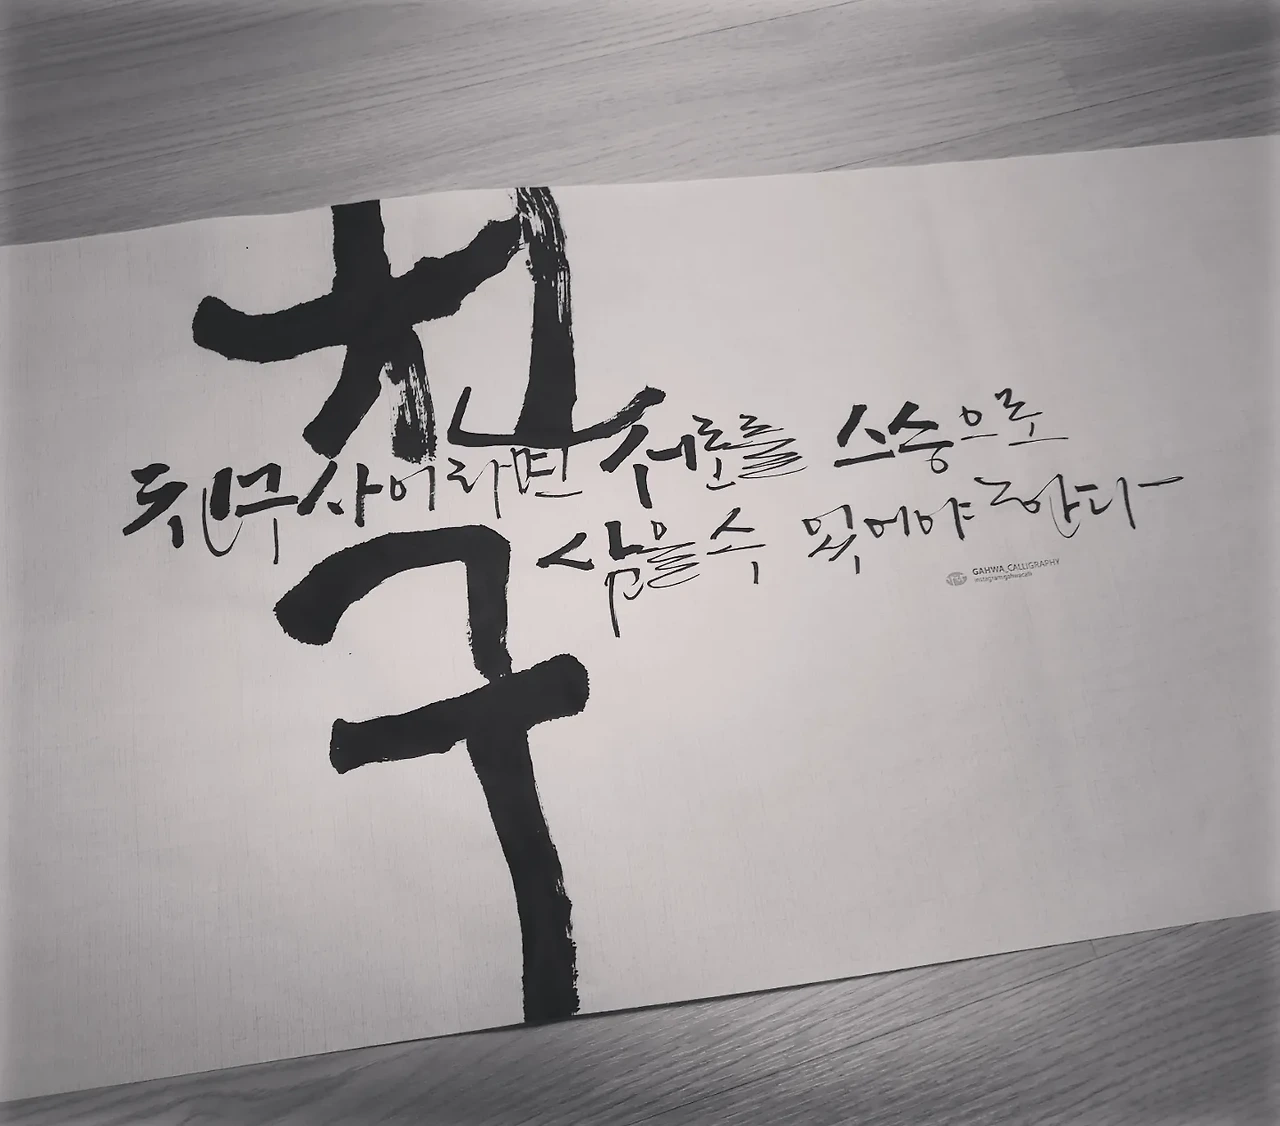 친구
친구사이라면 서로를 스승으로
삼을 수 있어야 한다
GAHWA_CALLIGRAPHY
instagram:gahwacalli